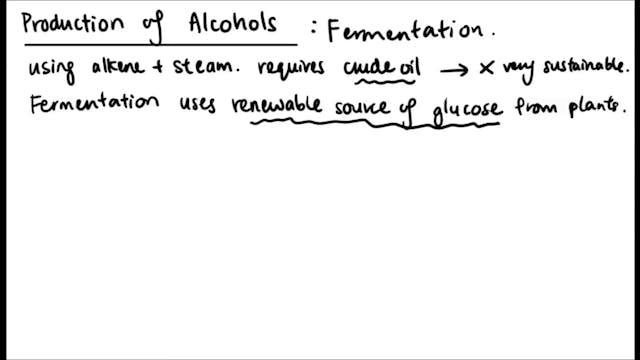 Production of Alcohols : Fermentation.
using alkene + steam. requires crude oil → × very sustainable.
Fermentation uses renewable source of glucose from plants.